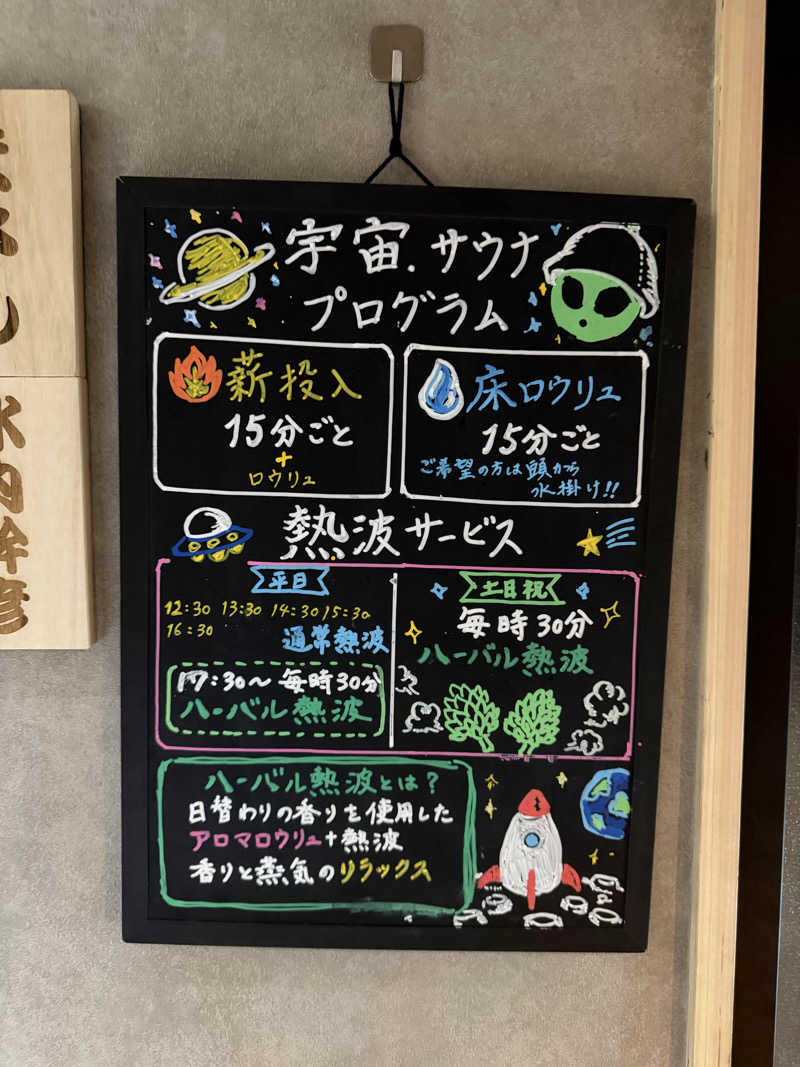 宇宙.サウナ
プログラム
薪投入
15分ごと
+
ロウリュ
床ロウリュ
15分ごと
ご希望の方は頭から
水掛け!!
熱波サービス
平日
12:30 13:30 14:30 15:30
16:30
通常熱波
17:30〜 毎時30分
ハーバル熱波
土日祝
毎時30分
ハーバル熱波
ハーバル熱波とは?
日替わりの香りを使用した
アロマロウリュ+熱波
香りと蒸気のリラックス